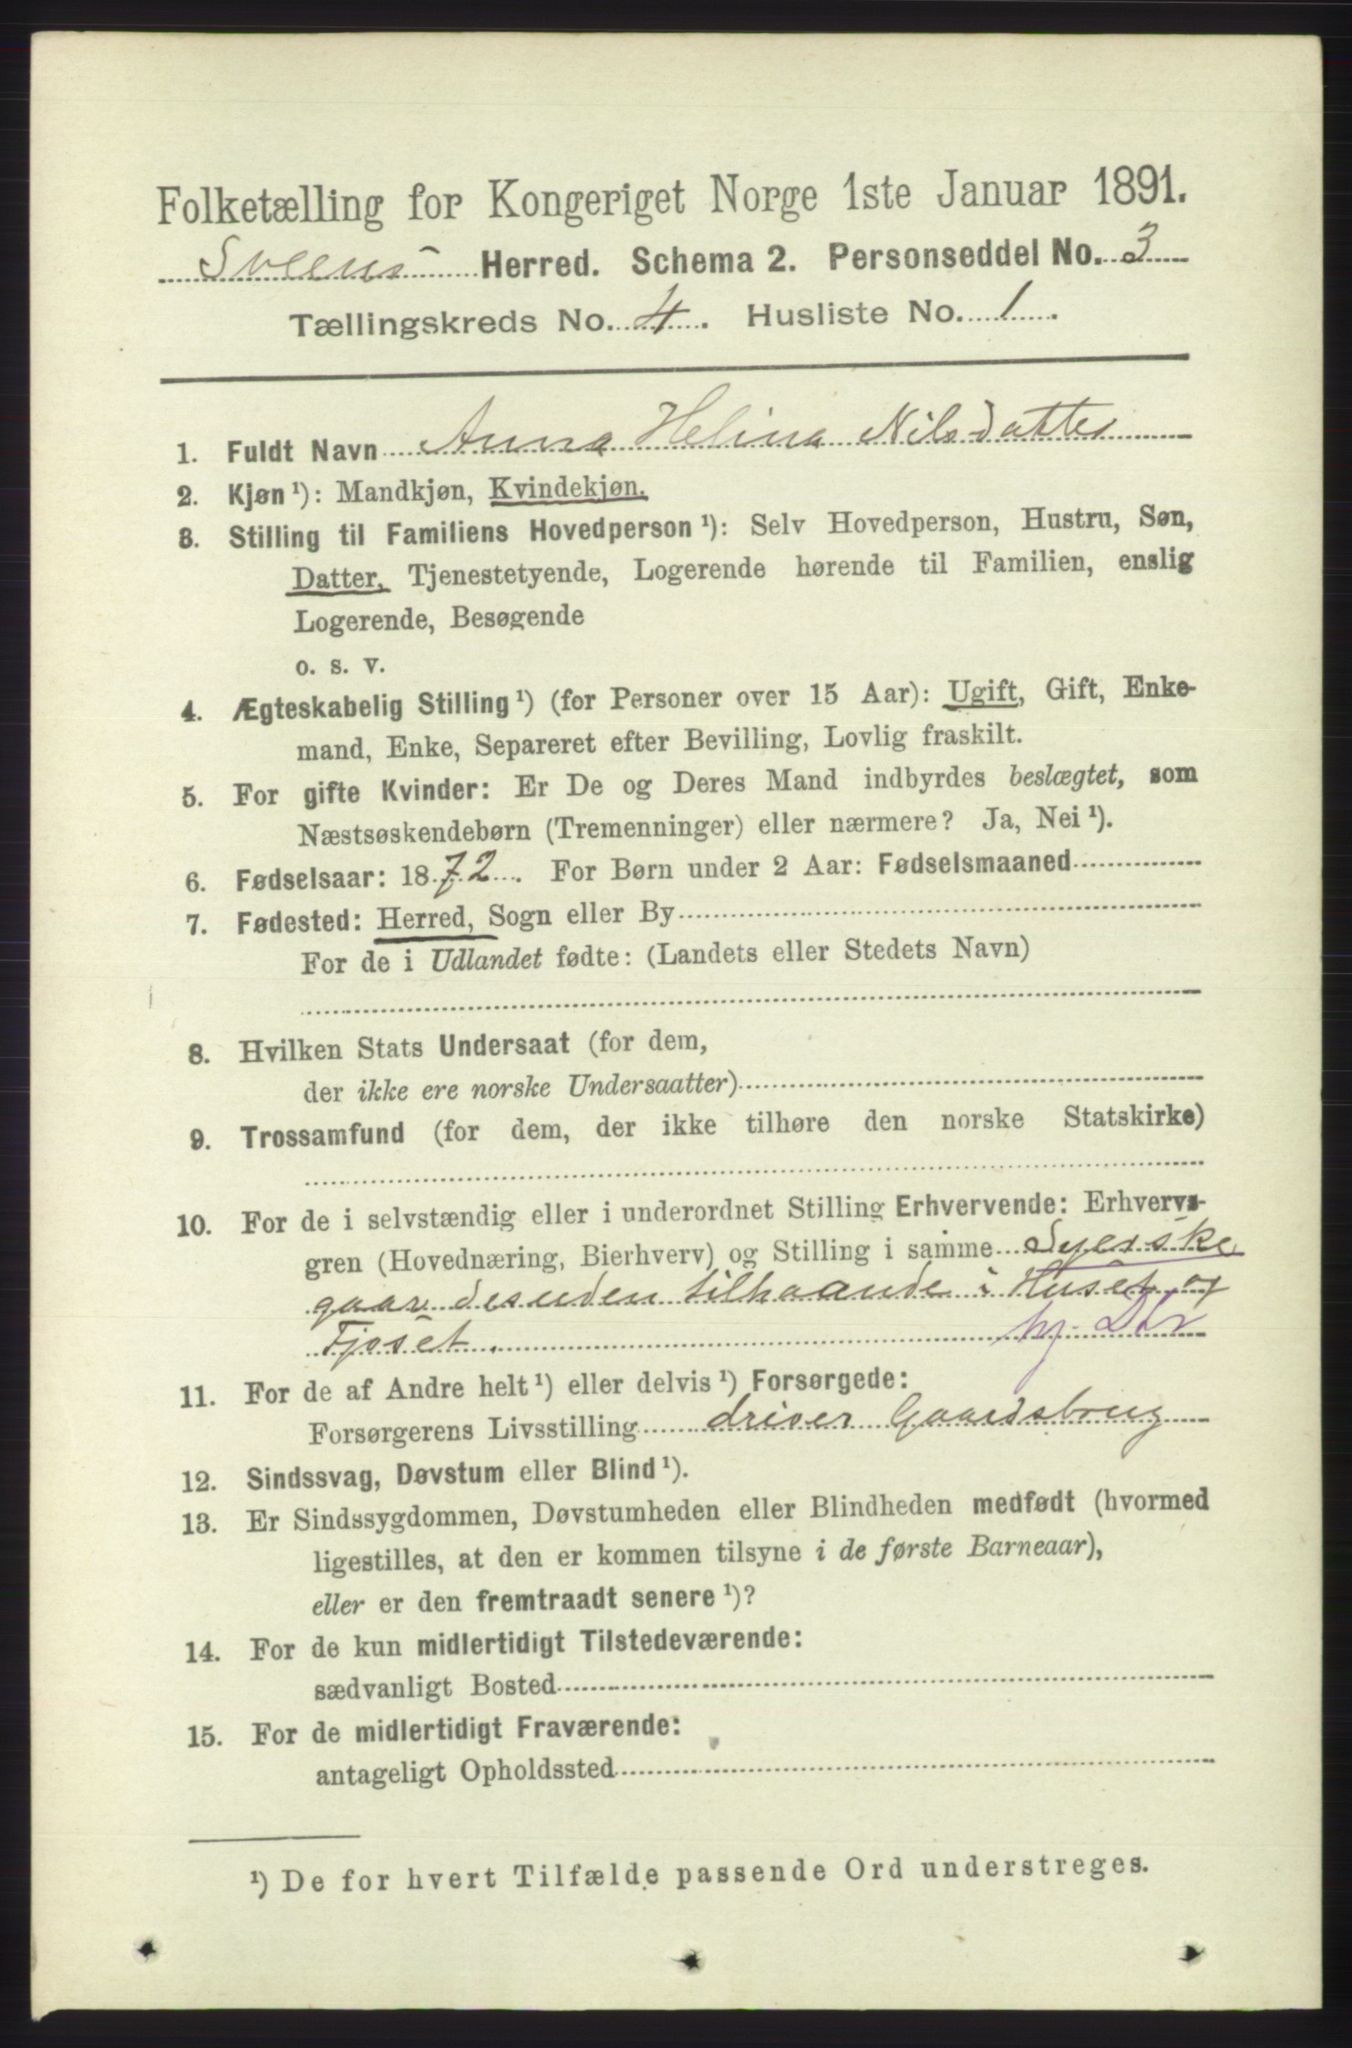 Folketælling for Kongeriget Norge 1ste Januar 1891.
Sveens Herred. Schema 2. Personseddel No. 3
Tællingskreds No. 4. Husliste No. 1.
1. Fuldt Navn Anna Helina Nilsdatter
2. Kjøn ¹): Mandkjøn, Kvindekjøn.
3. Stilling til Familiens Hovedperson ¹): Selv Hovedperson, Hustru, Søn,
Datter, Tjenestetyende, Logerende hørende til Familien, enslig
Logerende, Besøgende
o. s. v.
4. Ægteskabelig Stilling ¹) (for Personer over 15 Aar): Ugift, Gift, Enke-
mand, Enke, Separeret efter Bevilling, Lovlig fraskilt.
5. For gifte Kvinder: Er De og Deres Mand indbyrdes beslægtet, som
Næstsøskendebørn (Tremenninger) eller nærmere? Ja, Nei ¹).
6. Fødselsaar: 1872. For Børn under 2 Aar: Fødselsmaaned
7. Fødested: Herred, Sogn eller By
For de i Udlandet fødte: (Landets eller Stedets Navn)
8. Hvilken Stats Undersaat (for dem,
der ikke ere norske Undersaatter)
9. Trossamfund (for dem, der ikke tilhøre den norske Statskirke)
10. For de i selvstændig eller i underordnet Stilling Erhvervende: Erhvervs-
gren (Hovednæring, Bierhverv) og Stilling i samme Syerske
gaar desuden tilhaande i Huset og
Fjøset. hj. Dtr
11. For de af Andre helt ¹) eller delvis ¹) Forsørgede:
Forsørgerens Livsstilling driver Gaardsbrug
12. Sindssvag, Døvstum eller Blind ¹).
13. Er Sindssygdommen, Døvstumheden eller Blindheden medfødt (hvormed
ligestilles, at den er kommen tilsyne i de første Barneaar),
eller er den fremtraadt senere ¹)?
14. For de kun midlertidigt Tilstedeværende:
sædvanligt Bosted
15. For de midlertidigt Fraværende:
antageligt Opholdssted
¹) De for hvert Tilfælde passende Ord understreges.